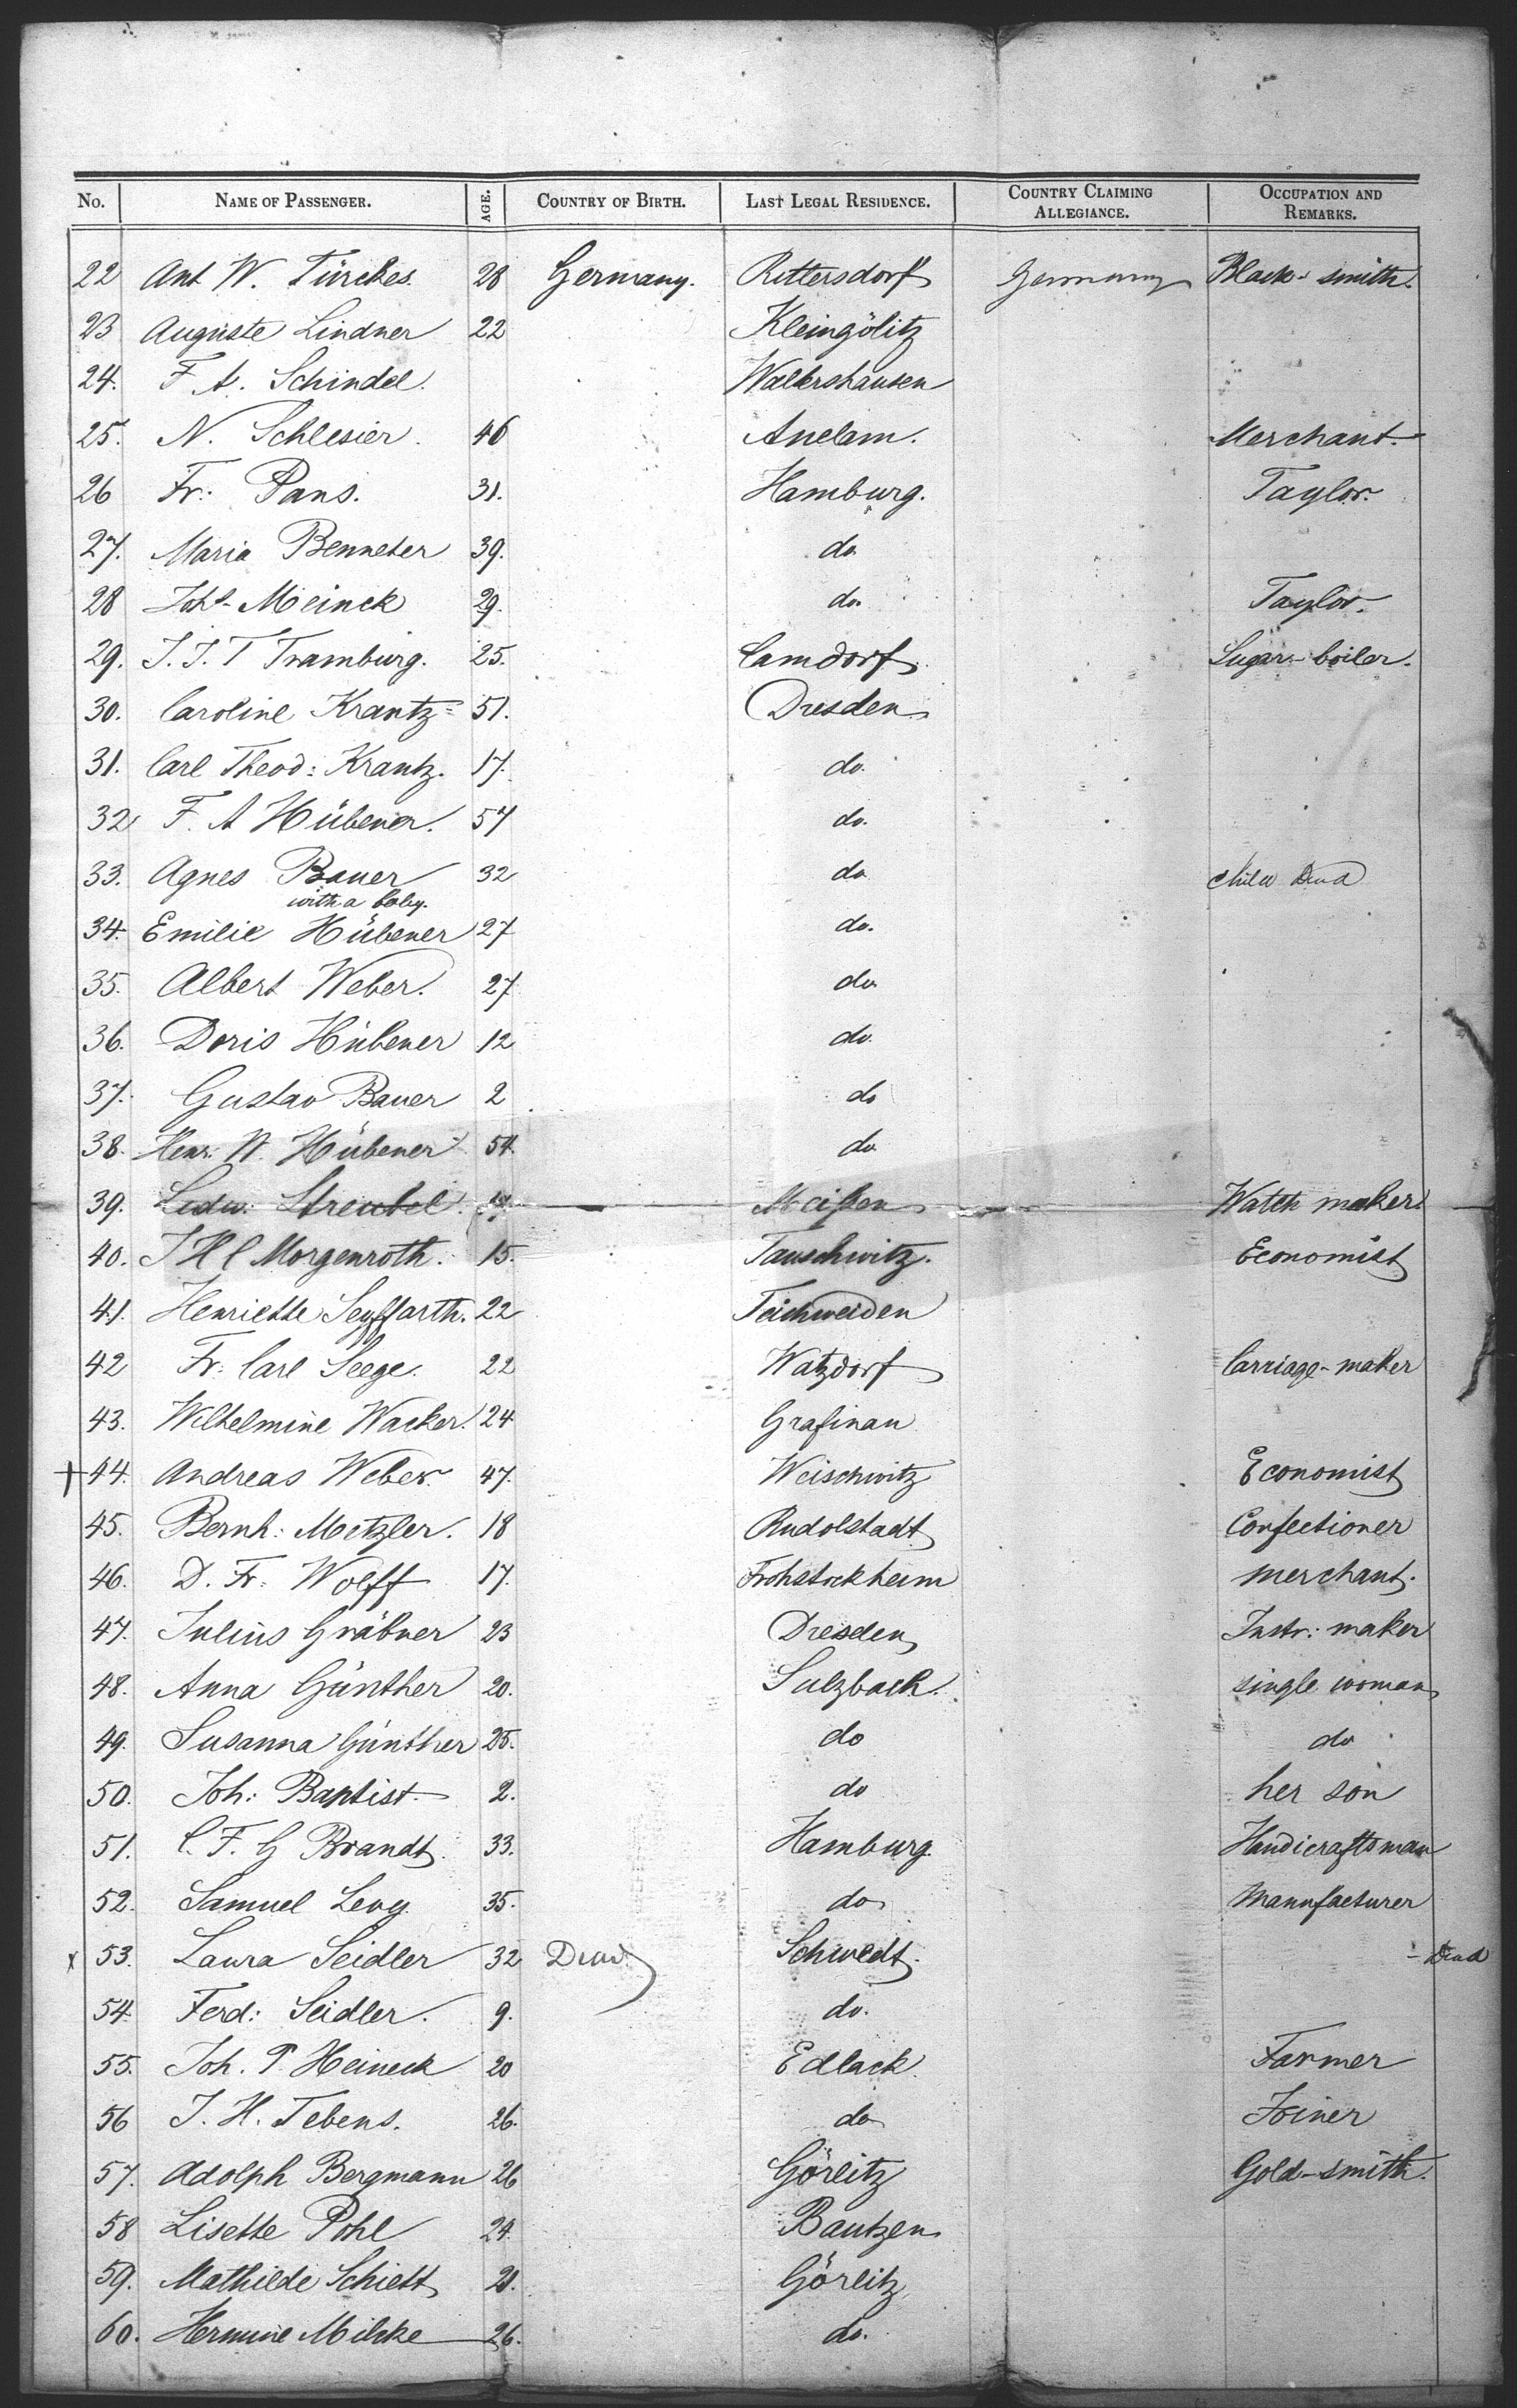 No. NAME OF PASSENGER. AGE. COUNTRY OF BIRTH. LAST LEGAL RESIDENCE. COUNTRY CLAIMING ALLEGIANCE. OCCUPATION AND REMARKS.
22 Ant W. Türckes. 28 Germany. Rittersdorf Germany Black-smith.
23 Auguste Lindner 22 Kleingölitz
24. F. A. Schindel. Waltershausen
25. N. Schlesier. 46 Anclam. Merchant.
26 Fr: Pans. 31. Hamburg. Taylor.
27. Maria Benneter 39. do
28 Joh. Meinck 29. do. Taylor.
29. J. J. T Tramburg. 25. Camdorf Sugar-boiler.
30. Caroline Krantz 51. Dresden
31. Carl Theod: Krantz. 17. do.
32 F. A Hübener. 57 do.
33. Agnes Bauer 32 do child Dead
with a baby.
34. Emilie Hübener 27 do.
35. Albert Weber. 27 do
36. Doris Hübener 12 do.
37. Gustav Bauer 2 do
38. Henr. W. Hübener 54 do
39. Ludw: Streubel. Meißen Watch maker.
40. J H C Morgenroth. 15. Tauschwitz. Economist
41. Henriette Seyffarth. 22 Teichweiden
42 Fr: Carl Seege. 22 Watzdorf Carriage-maker
43. Wilhelmine Wacker. 24 Grafinau
+ 44. Andreas Weber. 47. Weischwitz Economist
45. Bernh: Metzler. 18 Rudolstadt Confectioner
46. D. Fr: Wolff 17. Frohstockheim merchant.
47. Julius Gräbner 23 Dresden Instr: maker
48. Anna Günther 20. Sulzbach. single woman
49. Susanna Günther 25. do do
50. Joh: Baptist 2. do her son
51. C. F. G Brandt. 33. Hamburg. Handicraftsman
52. Samuel Levy. 35. do Manufacturer
x 53. Laura Seidler 32 Dead Schwedt. - Dead
54. Ferd: Seidler. 9. do.
55. Joh. P. Heineck 20 Edlack. Farmer
56 J. H. Tebens. 26. do Joiner
57. Adolph Bergmann 26 Görlitz Gold-smith.
58 Lisette Pohl 24. Bautzen
59. Mathilde Schiett Görlitz
60. Hermine Milcke 26. do.